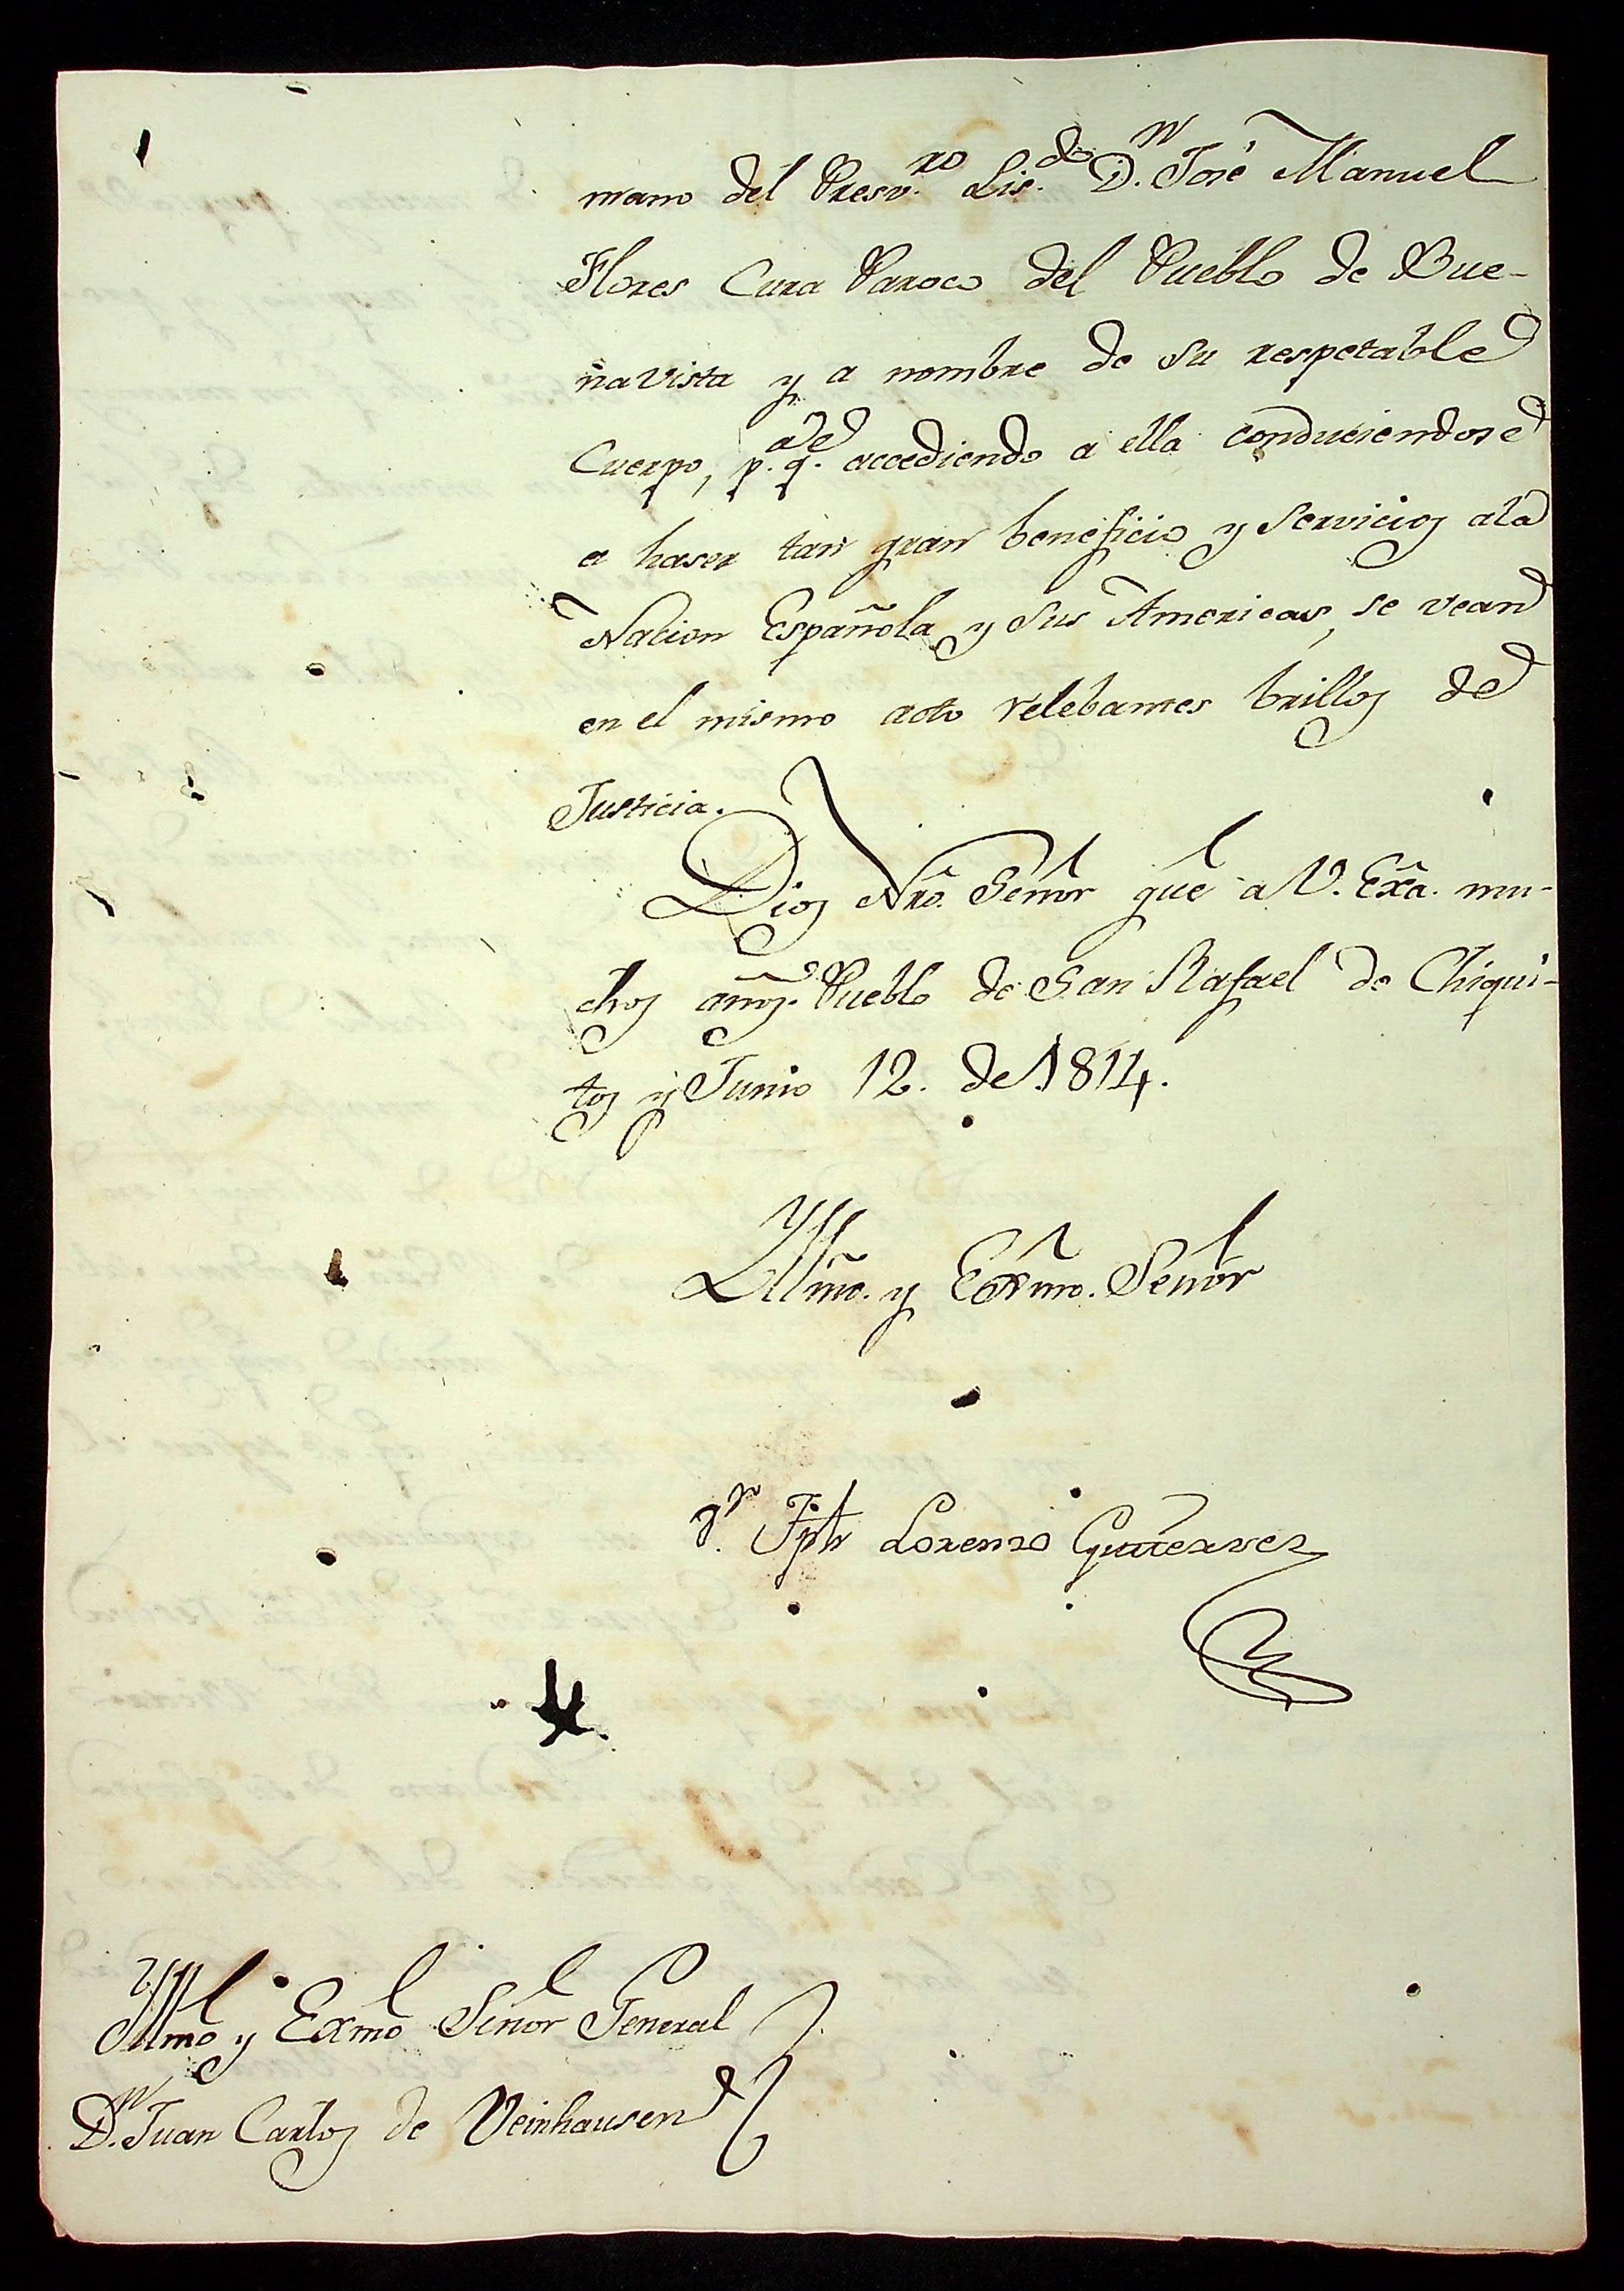 mano del Presv.ro Lis.do D.n José Manuel
Flores Cura Paroco del Pueblo de Bue-
na Vista y a nombre de su respetable
Cuerpo, p.a q.e accediendo a ella conduciendose
a haser tan gran beneficio y Servicios ala
Nacion Española y sus Americas, se vean
en el mismo acto relebantes brillos de
Justicia.
Dios Nrõ. Señor gũe a V. Exã. mu-
chos años. Pueblo de San Rafael de Chiqui-
tos y Junio 12. de 1814.
Yllmõ. y Exmo. Señor
Jph Lorenzo Gutierrez
Yllmo y Exmo Señor General
D.n Juan Carlos de Veinhausen